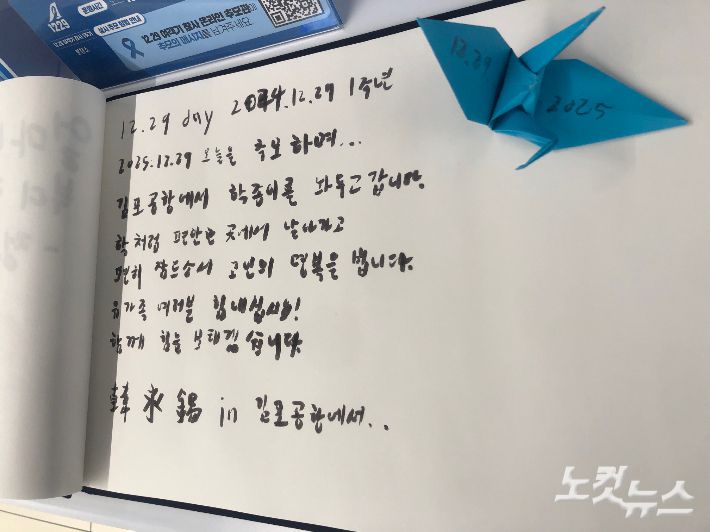 12.29
12.29 여객기 참사 온라인 추모관에
추모의 메시지를 남겨주세요
12.29 day 2024.12.29 1주년
2025.12.29 오늘을 추모하며...
김포공항에서 학종이를 놔두고 갑니다.
학처럼 편안한 곳에서 날아가고
편히 잠드소서 고인의 명복을 빕니다.
유가족 여러분 힘내십시요!
함께 힘을 보태겠습니다.
韓永錫 in 김포공항에서..
12.29
2025
노컷뉴스